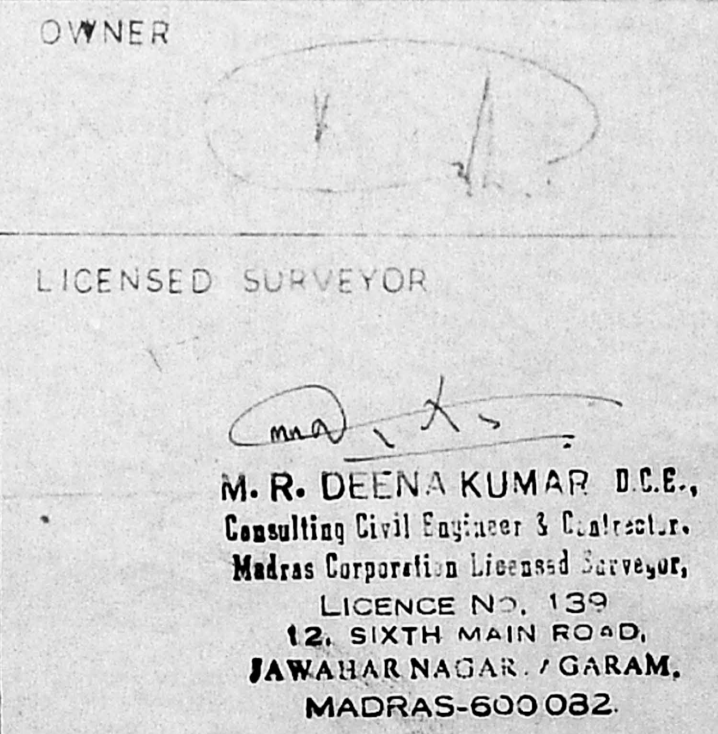 OWNER
LICENSED SURVEYOR
M. R. DEENA KUMAR D.C.E.,
Consulting Civil Engineer & Contractor.
Madras Corporation Licensed Surveyor,
LICENCE NO. 139
12, SIXTH MAIN ROAD,
JAWAHAR NAGAR. / GARAM,
MADRAS-600 082.